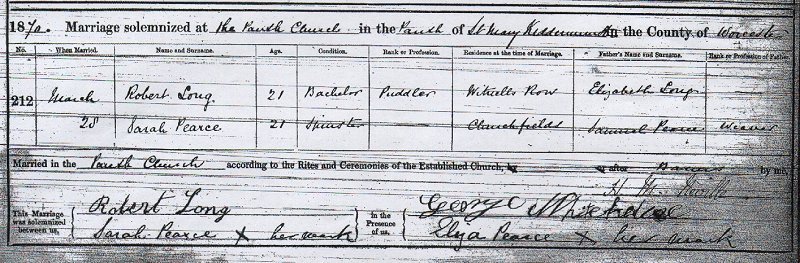 1870. Marriage solemnized at the Parish Church in the Parish of St Mary Kidderminster in the County of Worcester
No. When Married. Name and Surname. Age. Condition. Rank or Profession. Residence at the time of Marriage. Father's Name and Surname. Rank or Profession of Father.
212 March Robert Long 21 Bachelor Puddler Row Elizabeth Long
28 Sarah Pearce 21 Spinster Churchfields Samuel Pearce Weaver
Married in the Parish Church according to the Rites and Ceremonies of the Established Church, by after Banns by me,
This Marriage was solemnized between us, Robert Long In the Presence of us, George
Sarah Pearce X her mark Eliza Pearce X her mark